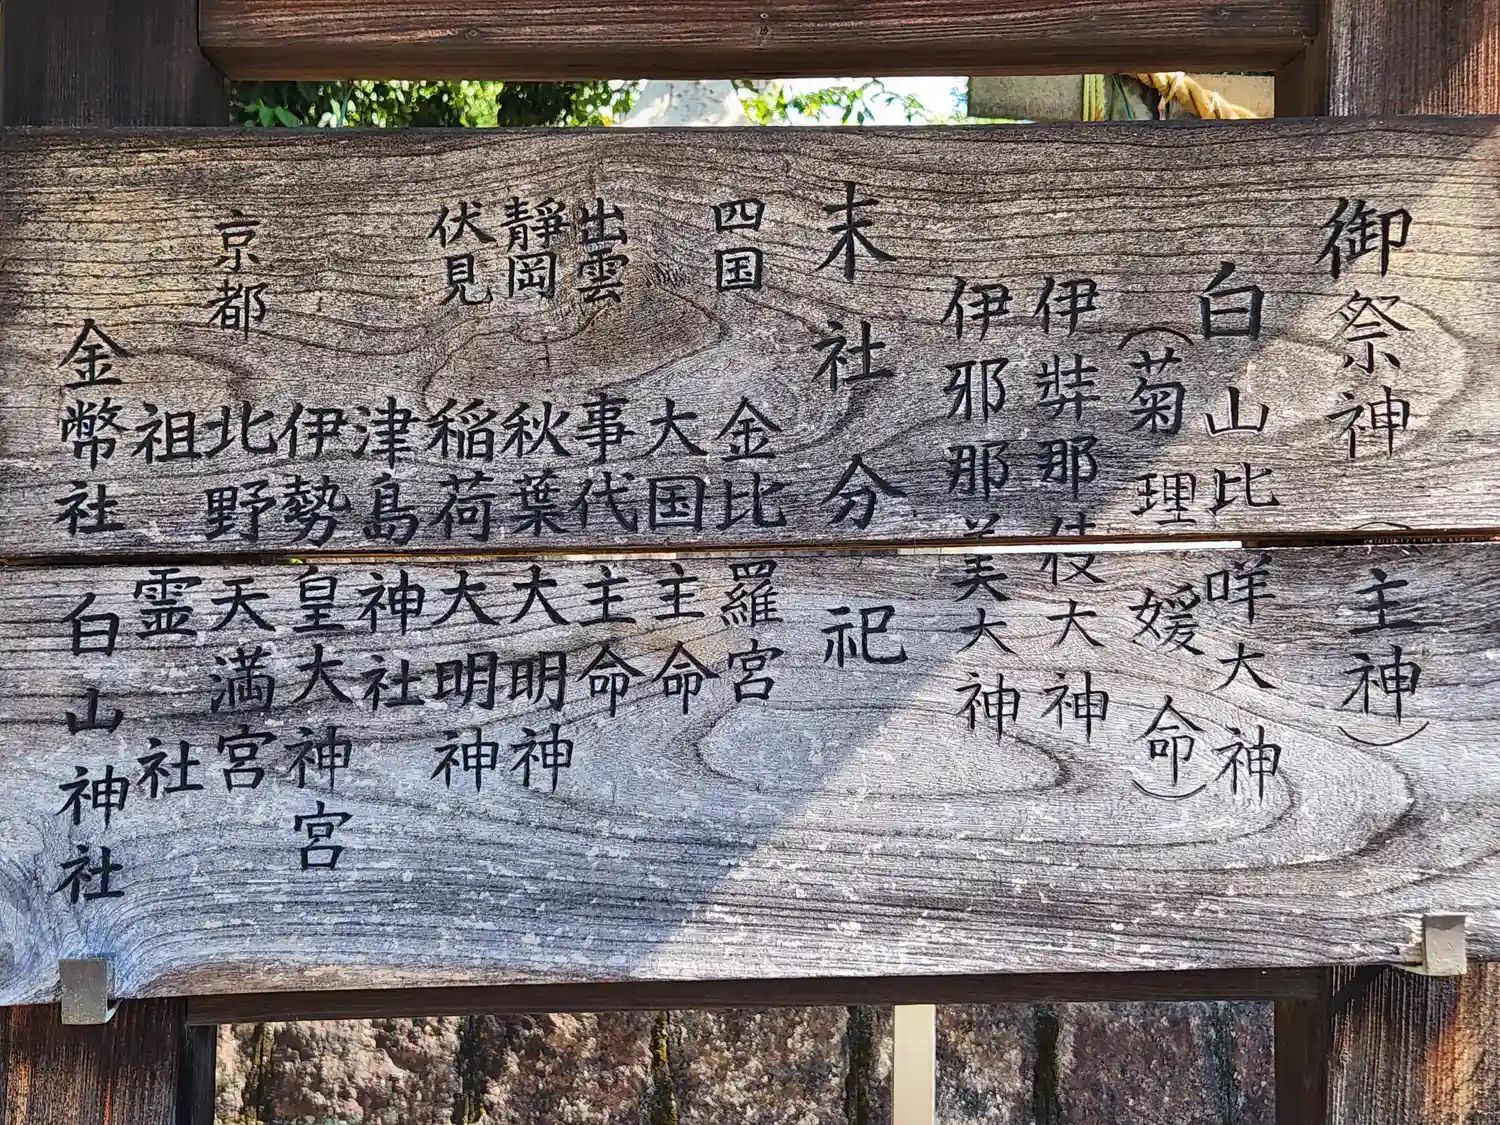 御祭神（主神）
白山比咩大神
（菊理媛命）
伊弉那伎大神
伊邪那美大神
末社分祀
四国 金比羅宮
大国主命
出雲 事代主命
靜岡 秋葉大明神
伏見 稲荷大明神
津島神社
伊勢皇大神宮
京都 北野天満宮
祖霊社
金幣社 白山神社